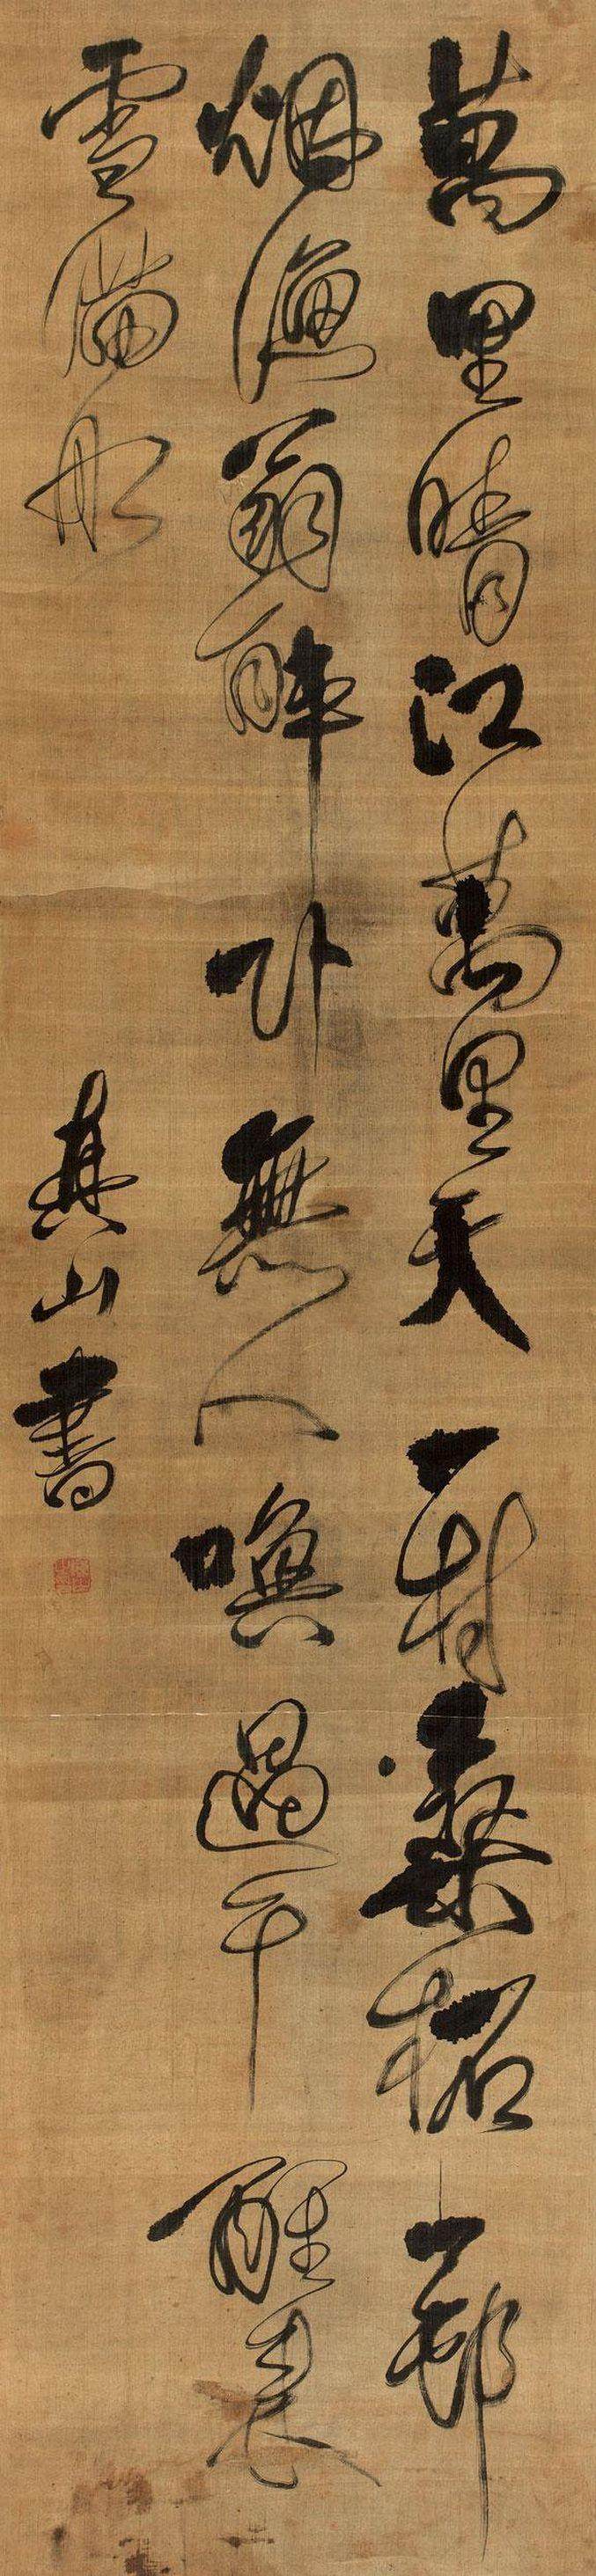 萬里晴江萬里天一村桑柘一邨
烟漁翁醉卧無人喚過午醒來
雪滿船
真山書